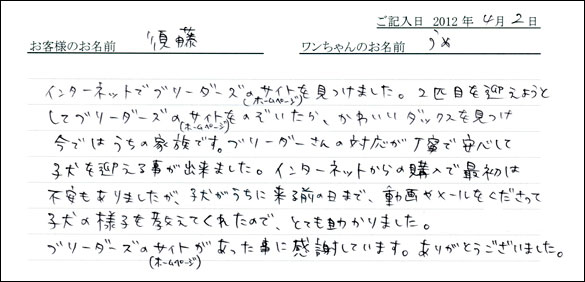 ご記入日 2012 年 4 月 2 日
お客様のお名前 須藤 ワンちゃんのお名前 うめ
インターネットでブリーダーズのサイトを見つけました。2匹目を迎えようと
(ホームページ)
してブリーダーズのサイトをのぞいたら、かわいいダックスを見つけ
(ホームページ)
今ではうちの家族です。ブリーダーさんの対応が丁寧で安心して
子犬を迎える事が出来ました。インターネットからの購入で最初は
不安もありましたが、子犬がうちに来る前の日まで、動画やメールをくださって
子犬の様子を教えてくれたので、とても助かりました。
ブリーダーズのサイトがあった事に感謝しています。ありがとうございました。
(ホームページ)